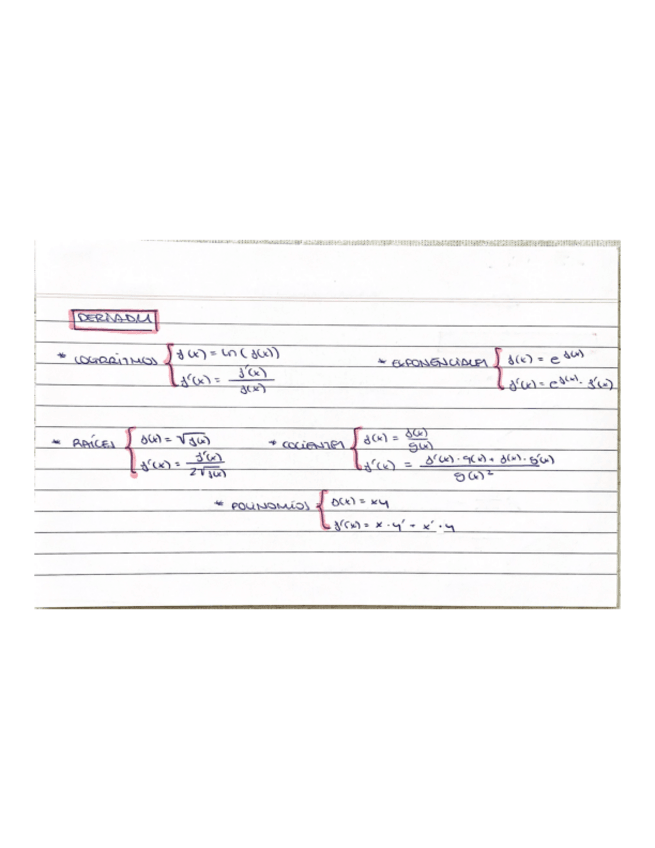 DERIVADA
* LOGARITMOS { f(x) = ln (f(x))
f'(x) = f'(x) / f(x)
* EXPONENCIALES { f(x) = e^f(x)
f'(x) = e^f(x) · f'(x)
* RAÍCES { f(x) = √f(x)
f'(x) = f'(x) / 2√f(x)
* COCIENTES { f(x) = f(x) / g(x)
f'(x) = f'(x) · g(x) + f(x) · g'(x) / g(x)²
* POLINOMIOS { f(x) = xy
f'(x) = x · y' + x' · y